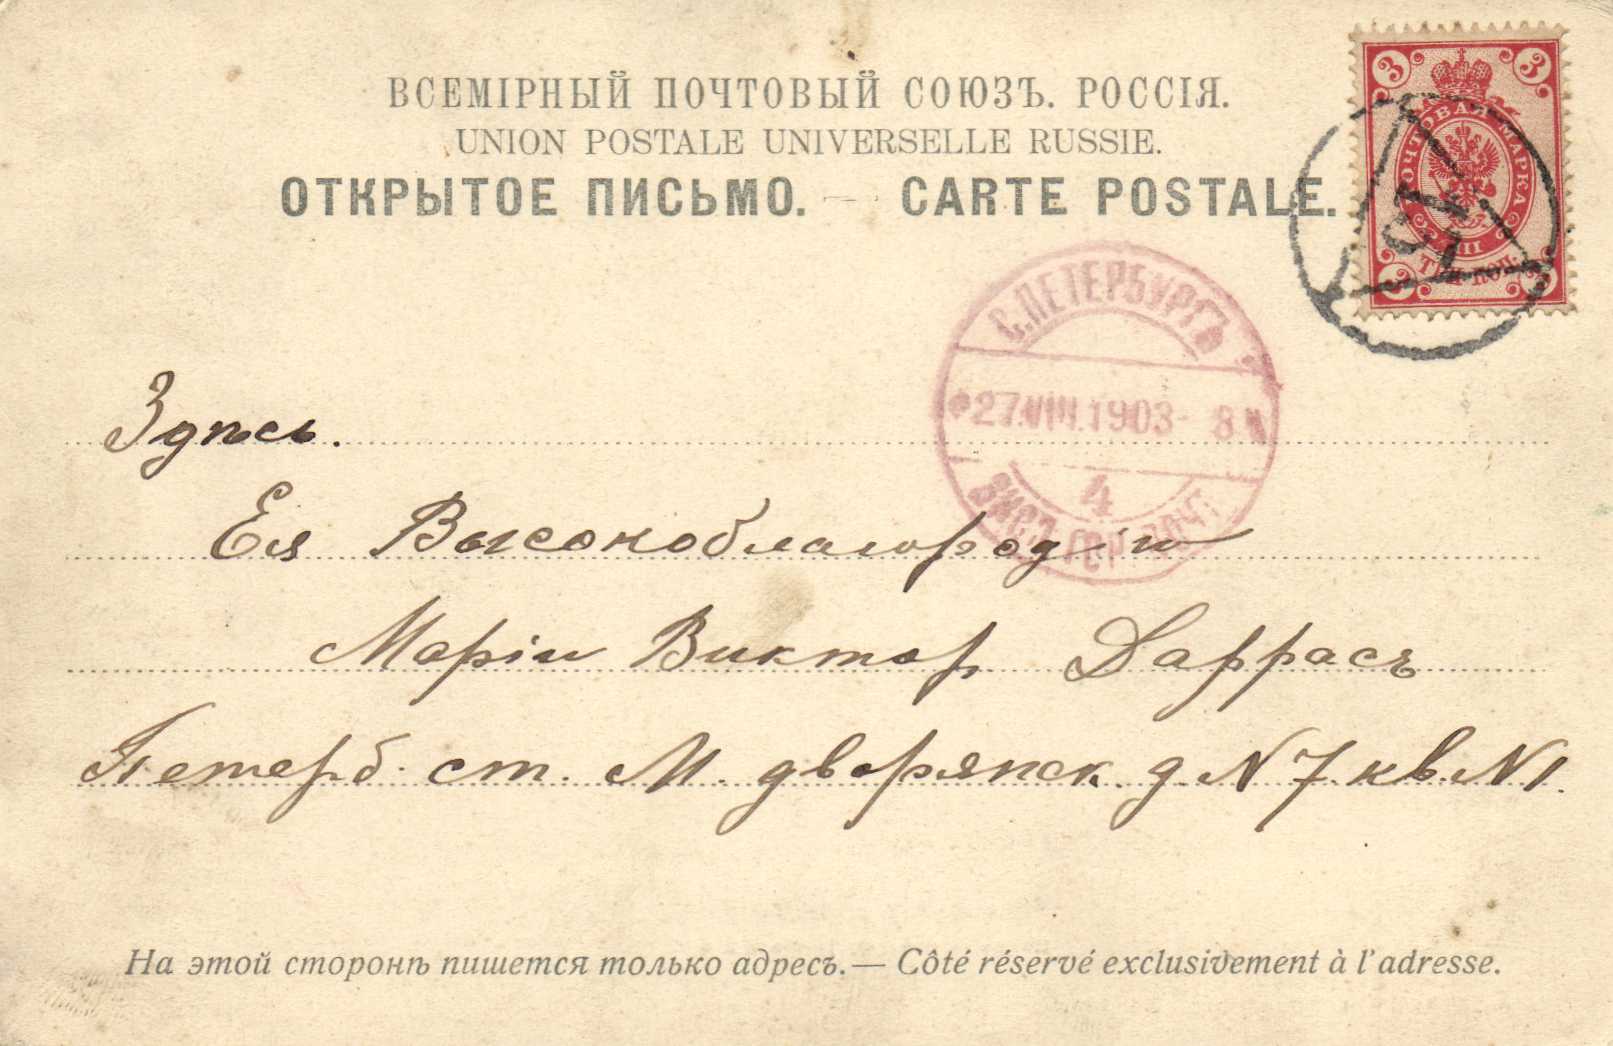 ВСЕМІРНЫЙ ПОЧТОВЫЙ СОЮЗЪ. РОССІЯ.
UNION POSTALE UNIVERSELLE RUSSIE.
ОТКРЫТОЕ ПИСЬМО. — CARTE POSTALE.
3 3
ПОЧТОВАЯ МАРКА
ТРИ КОП.
3
С.ПЕТЕРБУРГЪ
27.VIII.1903- 8
4
Здѣсь.
Ея Высокоблагородію
Маріи Виктор Даррасъ
Петерб. ст. М. дворянск. д. N 7 кв. N 1.
На этой сторонѣ пишется только адресъ. — Côté réservé exclusivement à l'adresse.